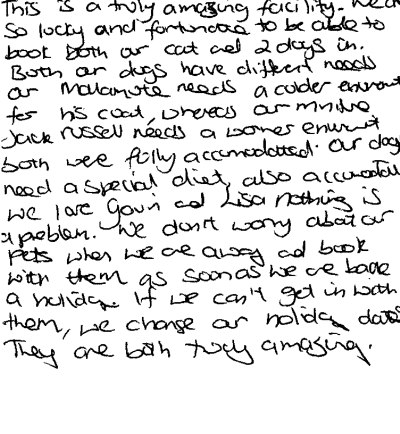 This is a truly amazing facility. We are
So lucky and fortunate to be able to
book both our cat and 2 dogs in.
Both our dogs have different needs
our Malamute needs a colder enviroment
for his coat, whereas our miniture
Jack russell needs a warmer enviroment
both were fully accomodated. Our dogs
need a special diet, also accomodated
we love Gavin and Lisa nothing is
a problem. We don't worry about our
pets when we are away and book
with them as soon as we are have
a holiday. If we can't get in with
them, we change our holiday dates
They are both truly amazing.